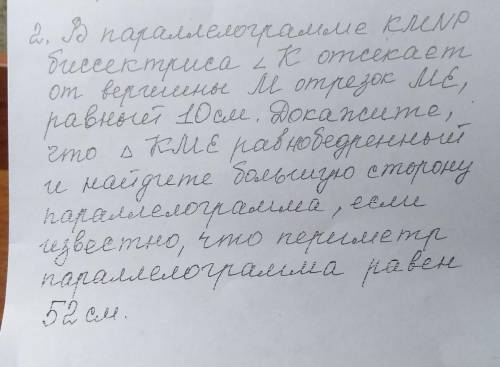 2. В параллелограмме KMNP
биссектриса ∠ K отсекает
от вершины M отрезок ME,
равный 10 см. Докажите,
что △ KME равнобедренный
и найдите большую сторону
параллелограмма, если
известно, что периметр
параллелограмма равен
52 см.